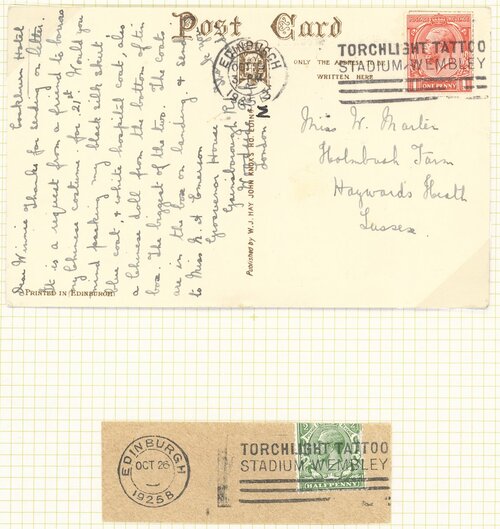 Post Card
ONLY THE
WRITTEN HERE
EDINBURGH
TORCHLIGHT TATTOO
STADIUM WEMBLEY
ONE PENNY
Cockburn Hotel
Dear Winnie Thanks for sending on letter.
It is a request from a friend to borrow
my Chinese costume for 21st. Would you
mind packing my black silk skirt
blue coat & white hospital coat, also
a Chinese doll from the bottom of tin
box. The biggest of the two. The coats
are in the box on landing, & send
to Miss K A
Grosvenor House
Gainsborough
London
Published by W. J. HAY JOHN KNOX'S HO EDIN
PRINTED IN EDINBURGH
Miss W. Martin
Holmbush Farm
Haywards Heath
Sussex.
EDINBURGH
OCT 26
1925 B
TORCHLIGHT TATTOO
STADIUM WEMBLEY
HALFPENNY